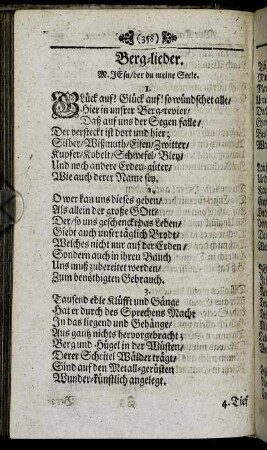 (358)
Berg-lieder.
M. JEsu/der du meine Seele.
1.
GLück auf! Glück auf! so wündschet alle/
Hier in unsrer Berg-revier/
Daß auf uns der Segen falle/
Der versteckt ist dort und hier;
Silber/Wißmuth/Eisen/Zwitter/
Kupfer/Kobelt/Schwefel/Bley/
Und noch andere Erden-güter/
Wie auch derer Name sey.
2.
O wer kan uns dieses geben/
Als allein der große GOtt/
Der/so uns geschenckt das Leben/
Giebt auch unser täglich Brodt/
Welches nicht nur auf der Erden/
Sondern auch in ihren Bauch
Uns muß zubereitet werden/
Zum benöthigten Gebrauch.
3.
Tausend edle Klüfft und Gänge
Hat er durch des Sprechens Macht
In das liegend und Gehänge/
Aus gantz nichts hervorgebracht;
Berg und Hügel in der Wüsten/
Derer Scheitel Wälder trägt/
Sind auf den Metall-gerüsten
Wunder-künstlich angelegt.
4. Tief